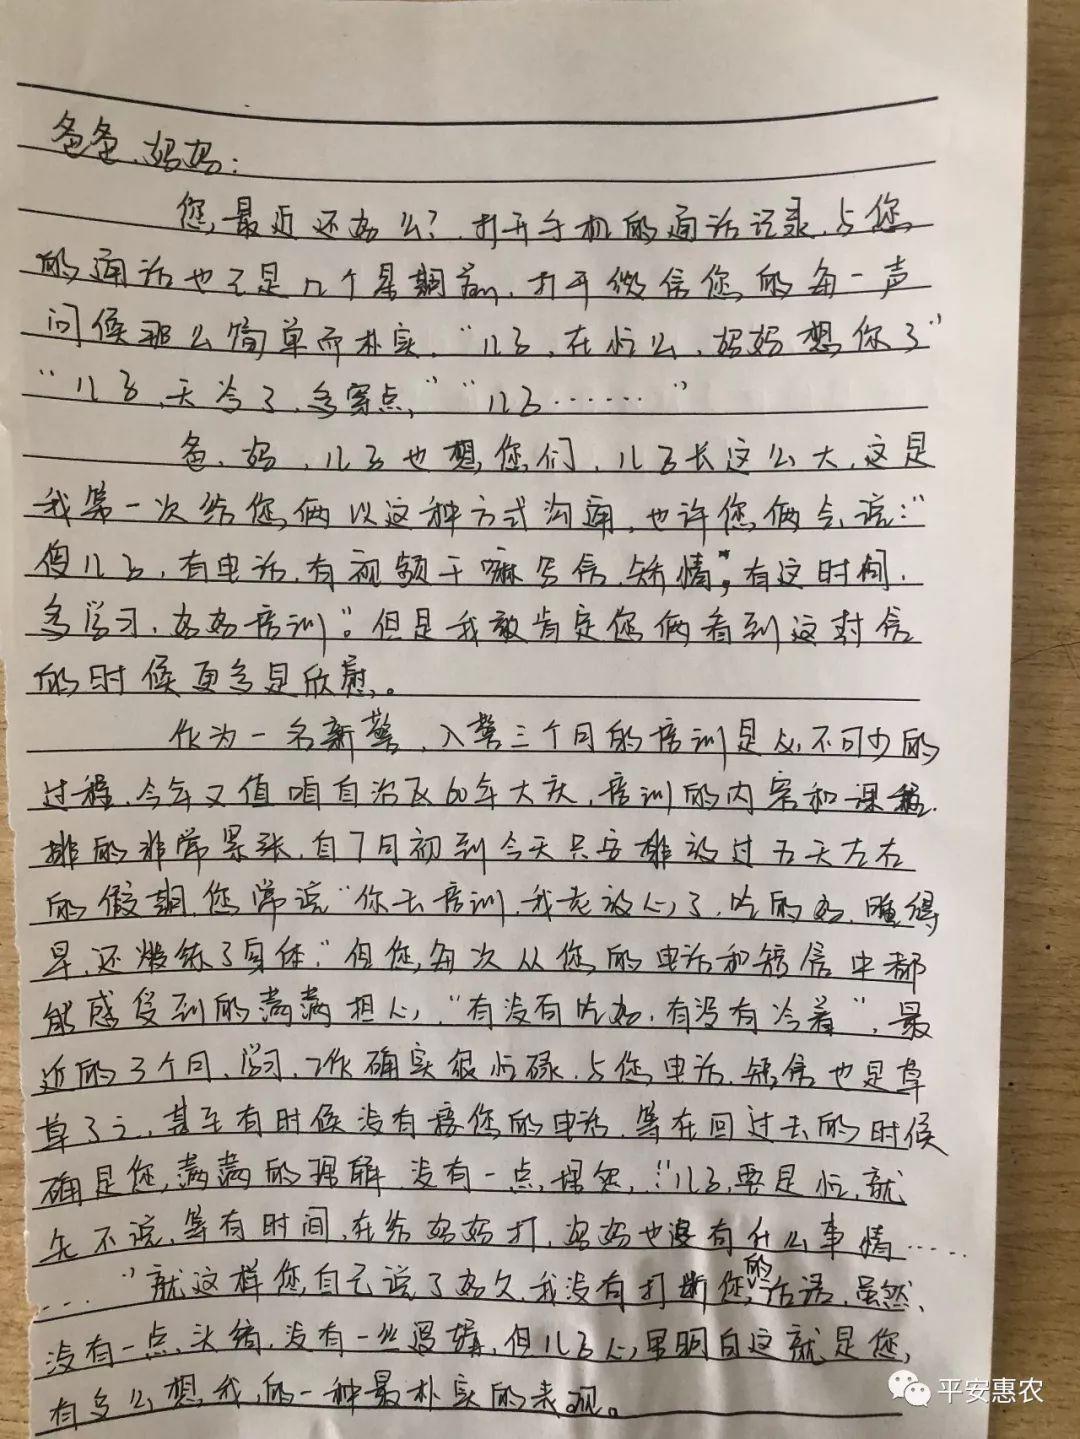 爸爸、妈妈:
您,最近还好么?打开手机的通话记录,与您
的通话也已是几个星期前,打开微信您的每一声
问候那么简单而朴实,“儿子,在忙么,妈妈想你了”
“儿子,天冷了,多穿点,”“儿子……”
爸、妈,儿子也想您们,儿子长这么大,这是
我第一次给您俩以这种方式沟通,也许您俩会说:“
傻儿子,有电话,有视频干嘛写信,矫情”,有这时间,
多学习,好好培训”。但是我敢肯定您俩看到这封信
的时候更多是欣慰。
作为一名新警,入警三个月的培训是必不可少的
过程,今年又值咱自治区60年大庆,培训的内容和课程
排的非常紧张,自7月初到今天只安排放过五天左右
的假期,您常说“你去培训,我老放心了,吃的好,睡得
早,还煅练了身体,”但您每次从您的电话和短信中都
能感受到的满满担心,“有没有吃好,有没有冷着”,最
近的3个月,学习,工作确实很忙碌,与您电话,短信也是草
草了之,甚至有时候没有接您的电话,等在回过去的时候
确是您满满的理解,没有一点埋怨,“儿子,要是忙,就
先不说,等有时间,在给妈妈打,妈妈也没有什么事情……
…”就这样您自己说了好久,我没有打断您的话语,虽然,
没有一点头绪,没有一丝逻辑,但儿子心里明白这就是您,
有多么想我,的一种最朴实的表现。
平安惠农